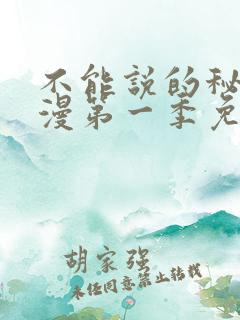 不能說的秘
漫第一季免
胡家强
未经同意禁止转载